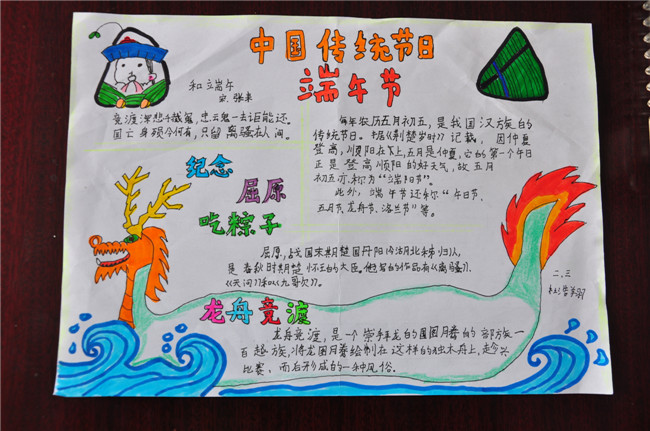 中国传统节日
端午节
和立端午
宋 张耒
竞渡深悲千载冤，忠云鬼一去讵能还。
国亡身殒今何有，只留离骚在人间。
每年农历五月初五，是我国汉族的
传统节日。据《荆楚岁时》记载，因仲夏
登高，顺阳在上，五月是仲夏，它的第一个午日
正是登高顺阳的好天气，故五月
初五亦称为“端阳节”。
此外，端午节还称“午日节、
五月节、龙舟节、浴兰节”等。
纪念
屈原
吃粽子
屈原，战国末期楚国丹阳今湖北秭归人，
是春秋时期楚怀王的大臣。他写的作品有《离骚》、
《天问》和《九歌》。
二.三
龙舟竞渡
龙舟竞渡，是一个崇拜龙的图腾的部族一
百越族，将龙图腾绘制在这样的独木舟上，趁兴
比赛，而后形成的一种风俗。